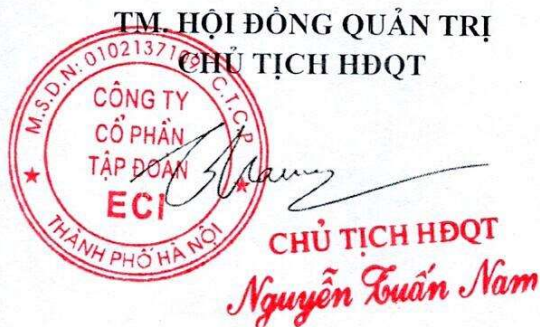 TM. HỘI ĐỒNG QUẢN TRỊ
CHỦ TỊCH HĐQT
M.S.D.N: 0102137109 C.T.C.P
CÔNG TY
CỔ PHẦN
TẬP ĐOÀN
ECI
THÀNH PHỐ HÀ NỘI
CHỦ TỊCH HĐQT
Nguyễn Tuấn Nam